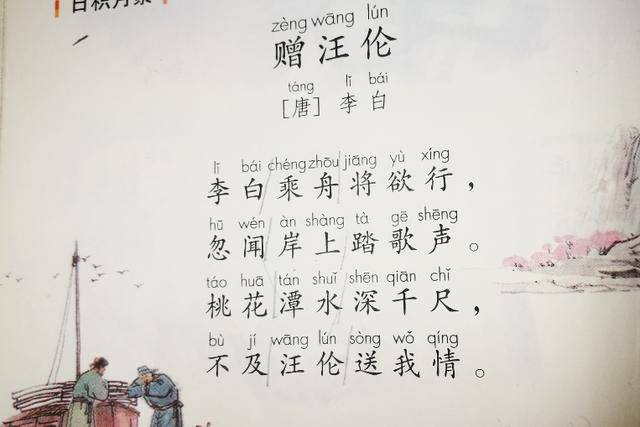 日积月累
zèng wāng lún
赠汪伦
táng lǐ bái
[唐] 李白
lǐ bái chéng zhōu jiāng yù xíng
李白乘舟将欲行，
hū wén àn shàng tà gē shēng
忽闻岸上踏歌声。
táo huā tán shuǐ shēn qiān chǐ
桃花潭水深千尺，
bù jí wāng lún sòng wǒ qíng
不及汪伦送我情。